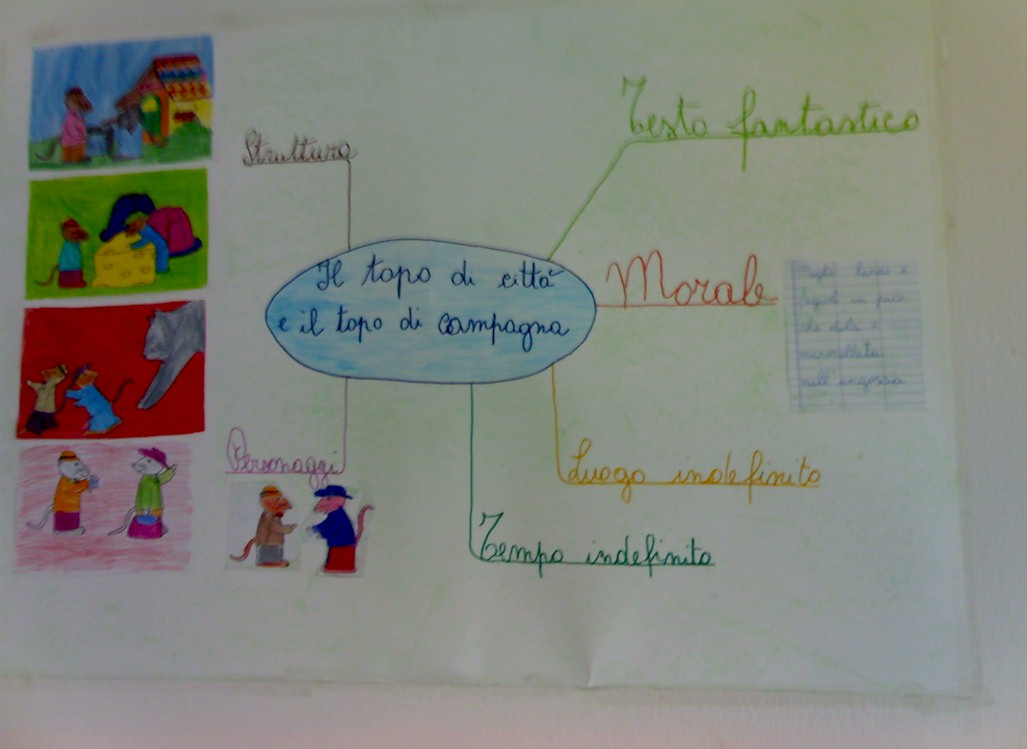 Testo fantastico
Struttura
Il topo di città
e il topo di campagna
Morale
lardo e
fagioli in pace
che dolci e
marmellata
nell'angoscia
Personaggi
Luogo indefinito
Tempo indefinito